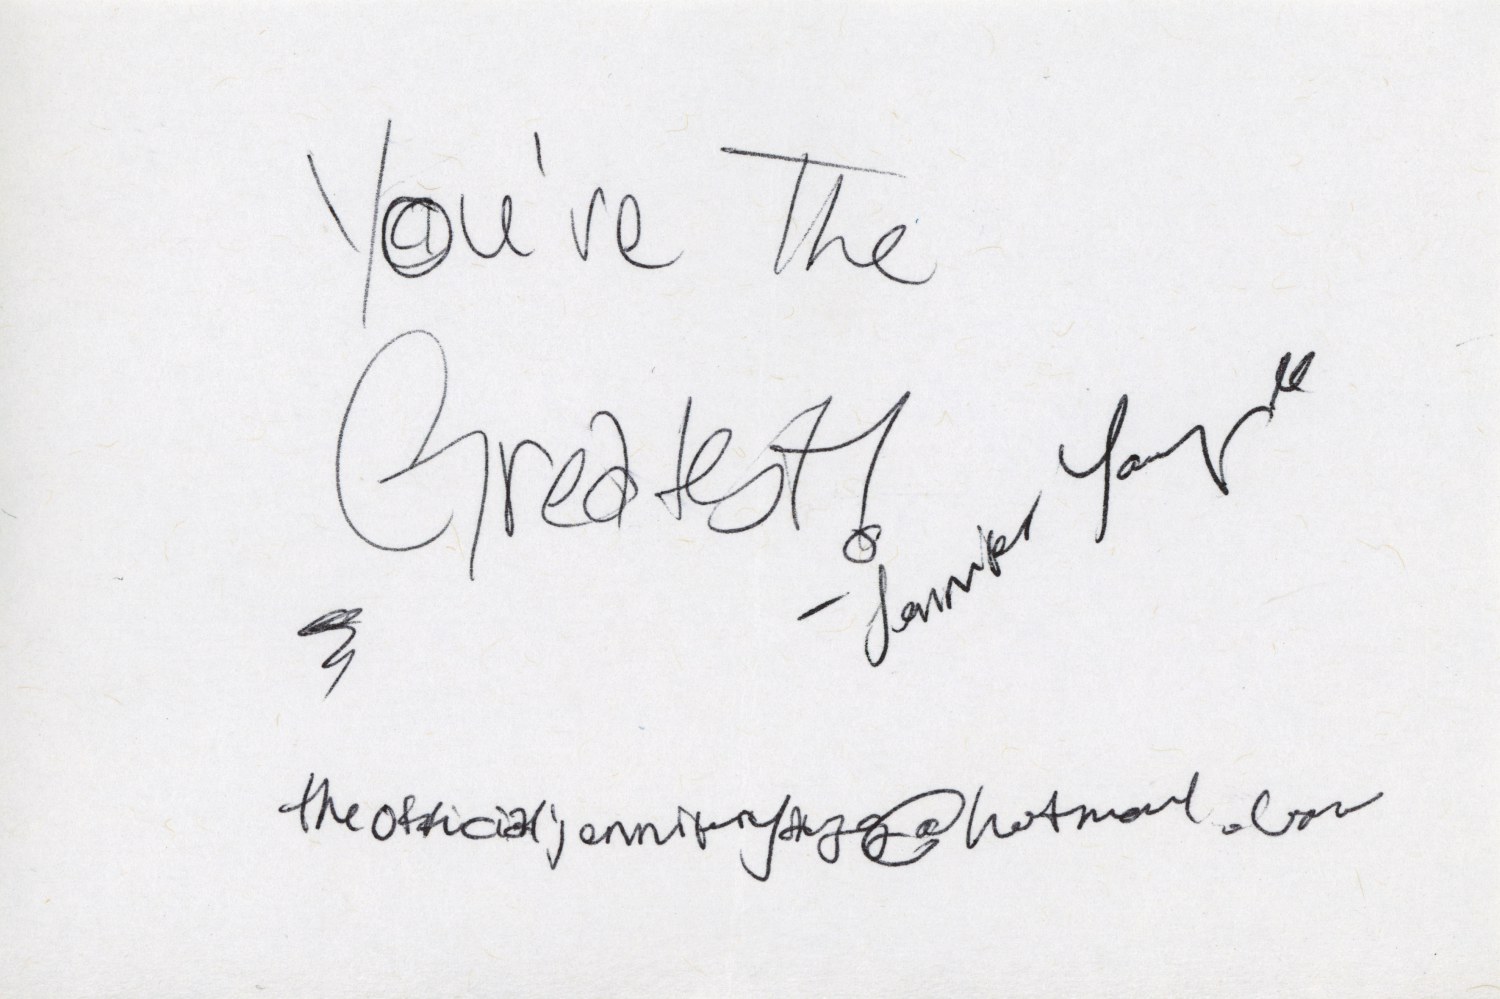 You're The
Greatest!
- Jennifer Yang
theofficialjenniferyang@hotmail.com